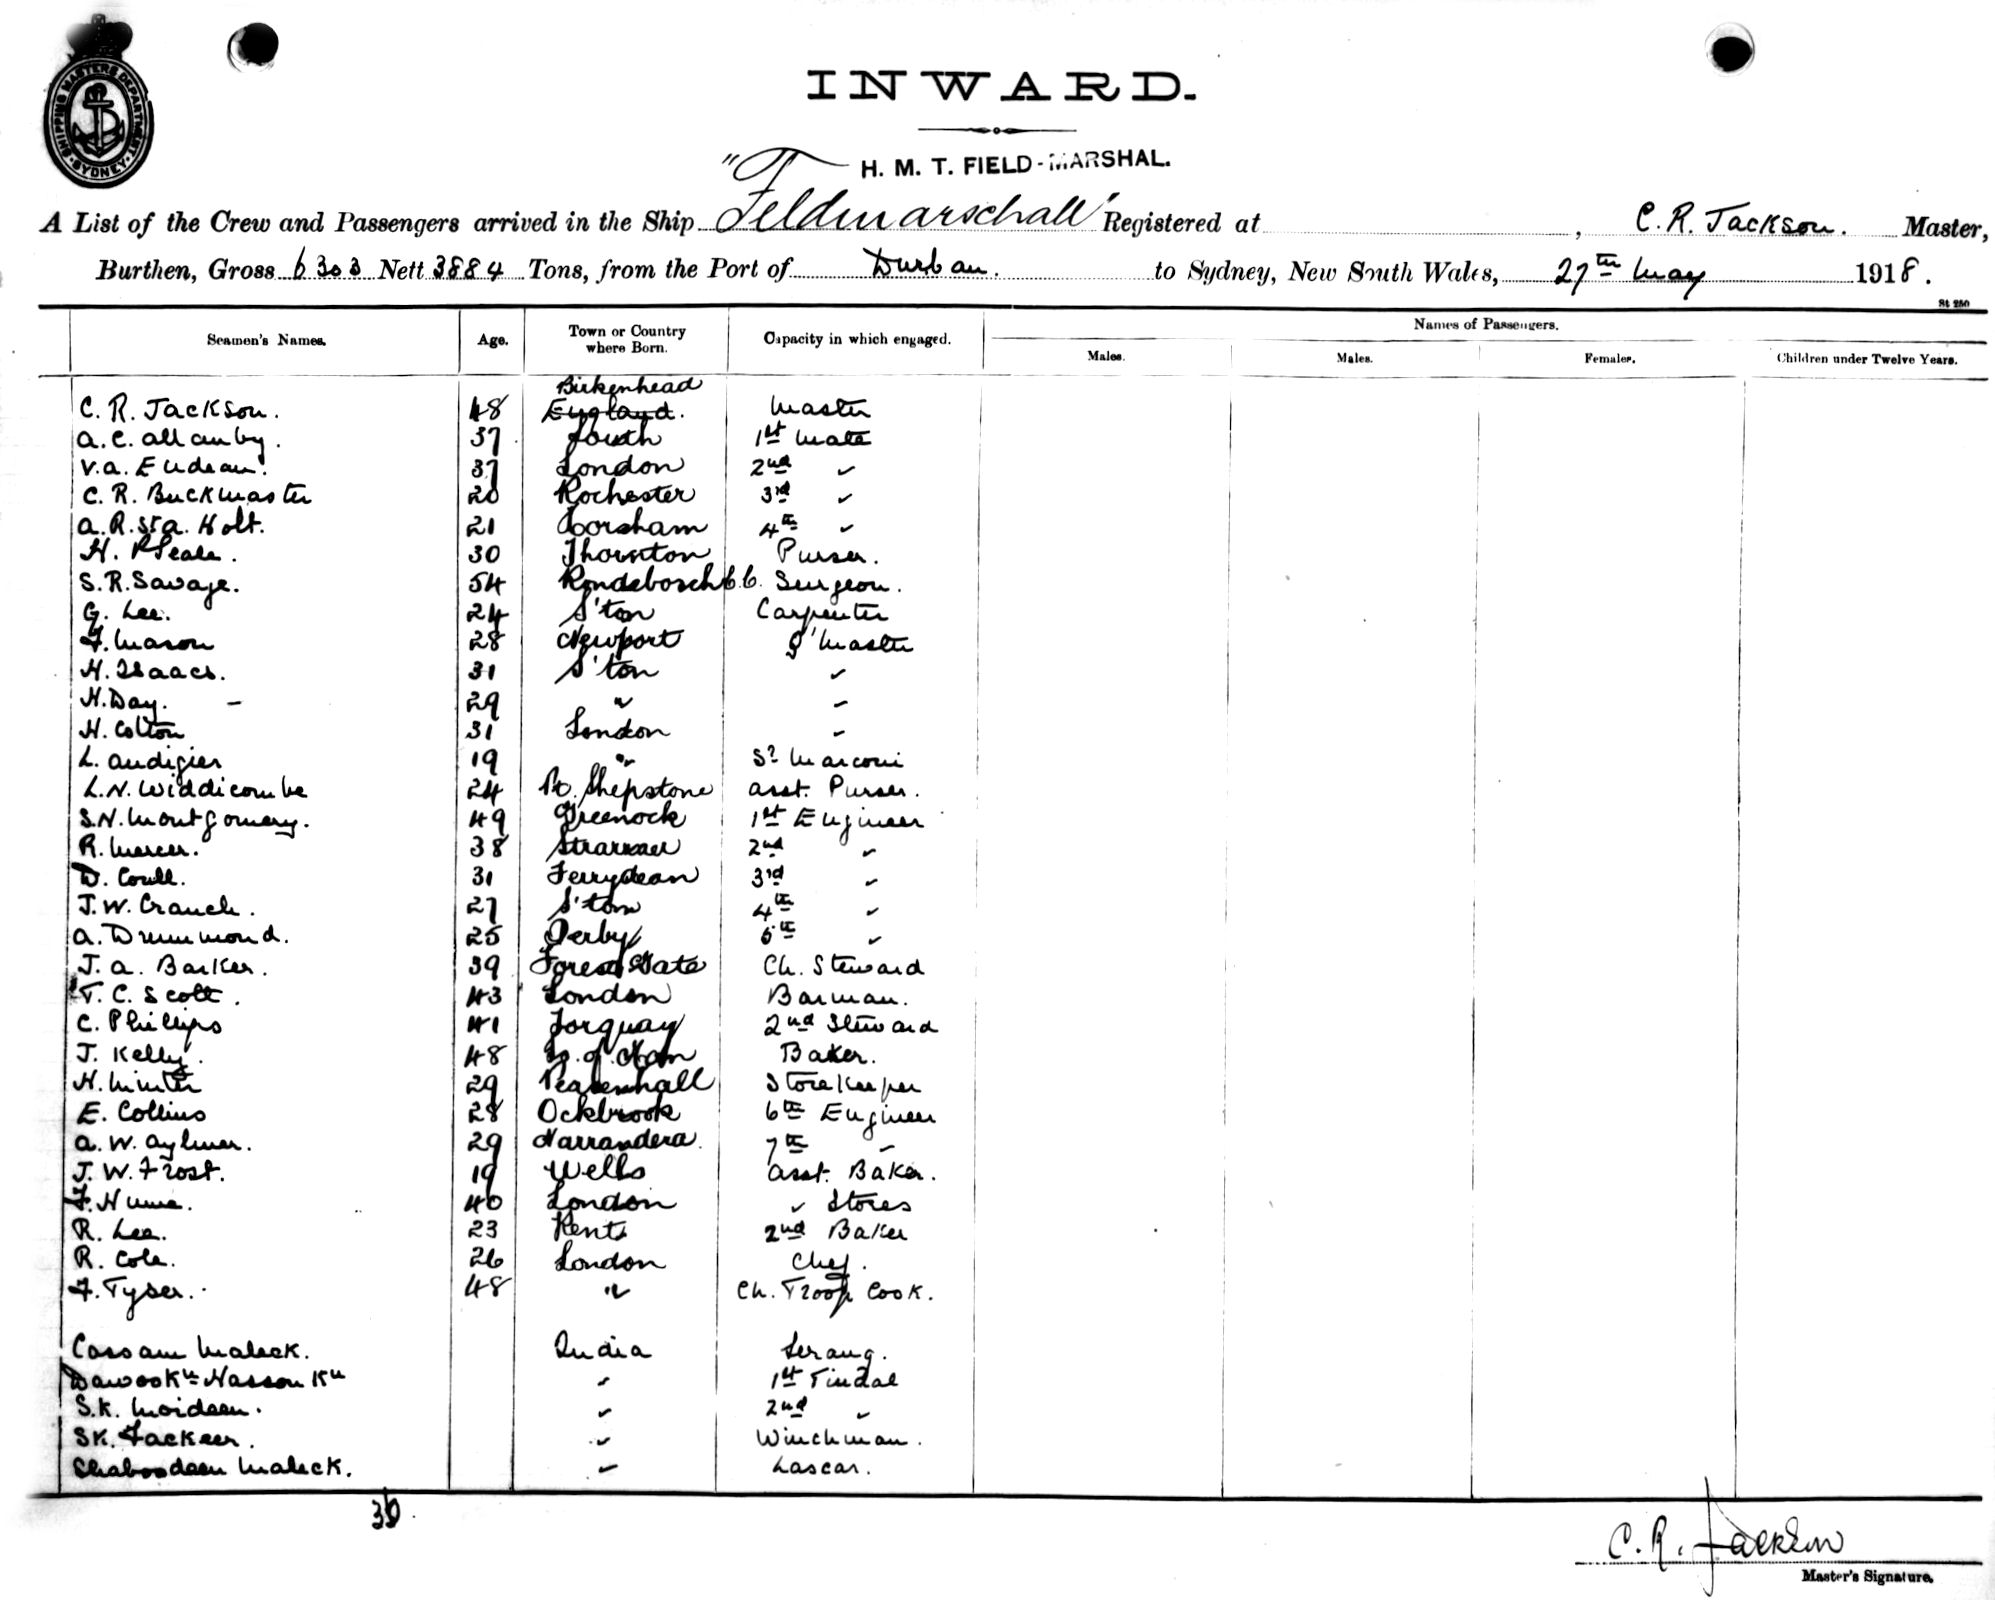 SHIPPING MASTERS DEPARTMENT. SYDNEY.
INWARD.
H. M. T. FIELD-MARSHAL.
A List of the Crew and Passengers arrived in the Ship "Feldmarschall" Registered at , C. R. Jackson. Master,
Burthen, Gross 6303 Nett 3884 Tons, from the Port of Durban. to Sydney, New South Wales, 27th May 1918.
St 250
Seamen's Names. Age. Town or Country where Born. Capacity in which engaged. Names of Passengers.
Males. Males. Females. Children under Twelve Years.
Birkenhead
C. R. Jackson. 48 England. Master
A. C. Allanby. 37 Louth 1st Mate
V. A. Eudean. 37 London 2nd "
C. R. Buckmaster 20 Rochester 3rd "
A. R. St A. Holt. 21 Horsham 4th "
H. Pseale. 30 Thornton Purser.
S. R. Savage. 54 Rondebosch C.C. Surgeon.
G. Lee. 24 S'ton Carpenter
F. Mason 28 Newport Q'Master
H. Isaacs. 31 S'ton "
H. Day. - 29 " "
H. Colton 31 London "
L. Audigier 19 " Sr Marconi
L. N. Widdicombe 24 Pt. Shepstone Asst. Purser.
S. N. Montgomery. 49 Greenock 1st Engineer
R. Mercer. 38 Stranraer 2nd "
D. Coull. 31 Ferrydean 3rd "
J. W. Crauch. 27 S'ton 4th "
A. Drummond. 25 Derby 5th "
J. A. Barker. 39 Forest Gate Ch. Steward
T. C. Scott. 43 London Barman.
C. Phillips 41 Torquay 2nd Steward
J. Kelly. 48 Is. of Man Baker.
H. Minter 29 Peasenhall Storekeeper
E. Collins 28 Ockbrook 6th Engineer
A. W. Aylmer. 29 Narrandera. 7th "
J. W. Frost. 19 Wells Asst. Baker.
F. Hume. 40 London " Stores
R. Lee. 23 Kent 2nd Baker
R. Cole. 26 London Chef.
F. Tyser. 48 " Ch. Troop Cook.
Cassam Maleck. India Serang.
Dawook Hasson Kn " 1st Tindal
S. K. Moideen. " 2nd "
SK. Fackeer. " Winchman.
Chaboodeen Maleck. " Lascar.
C. R. Jackson
Master's Signature.